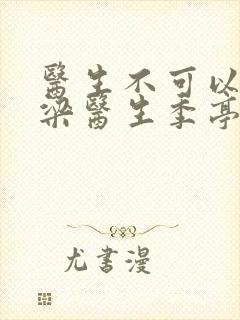 醫生不可以
梁醫生季亭
尤書漫